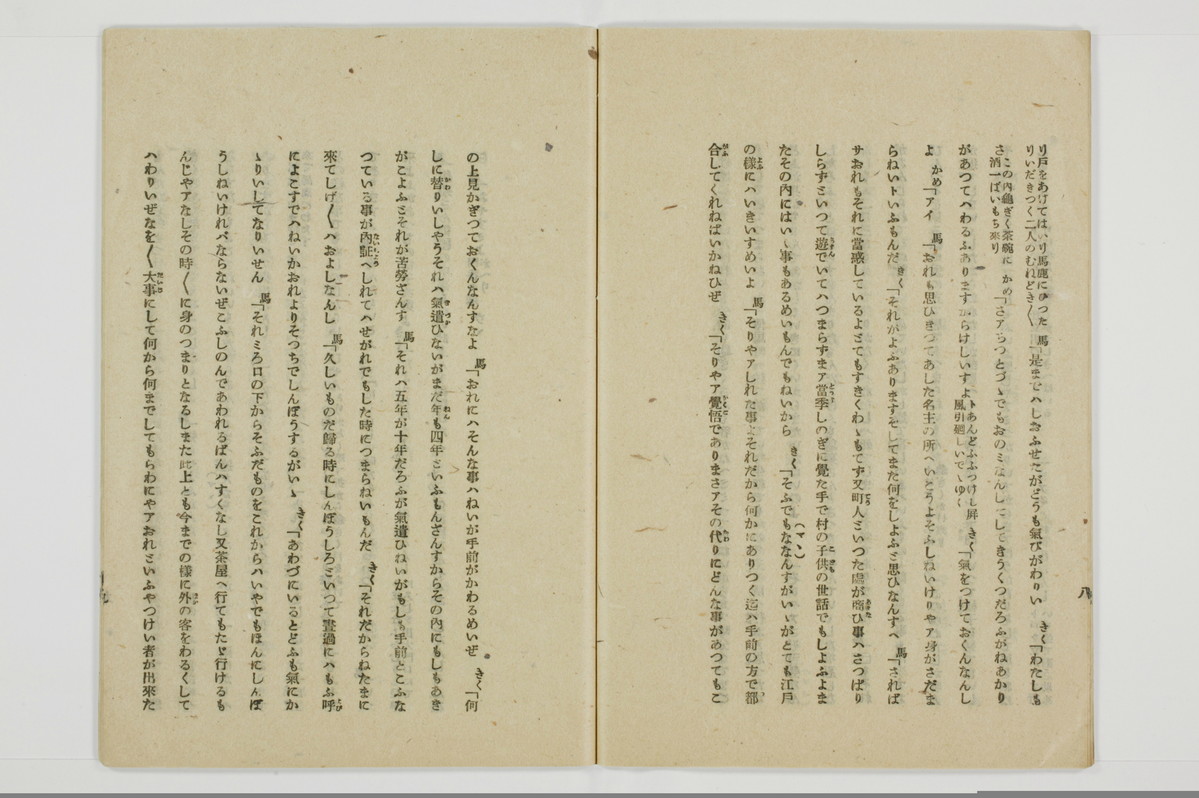 り戸をあけてはいり馬鹿にひつた 馬「是までハしおふせたがどうも氣びがわりい きく「わたしも
りいだきつく二人のむねどき〳〵
さこの内龜ぎく茶碗に かめ「さアちつとづゝでもおのミなんしにしてきうくつだろふがねあかり
酒一ぱいもち來り
があつてハわるふありますからけしいすよ トあんどふふつけし屛 きく「氣をつけておくんなんし
風引廻しいでゝゆく
よ かめ「アイ 馬「おれも思ひきつてあした名主の所へいとうよそふしねいけりやア身がさだま
らねいトいふもんだ きく「それがよふありますそしてまた何をしよふと思ひなんすへ 馬「されば
サおれもそれに當惑しているよとてもすきくわゝもてず又町人といつた處が商ひ事ハさつぱり
しらずといつて遊でいてハつまらずまア當季しのぎに覺た手で村の子供の世話でもしよふよま
たその内にはいゝ事もあるめいもんでもねいから きく「そふでもななんすがいゝがとても江戸
の樣にハいきいすめいよ 馬「そりやアしれた事よそれだから何かにありつく迄ハ手前の方で都
合してくれねばいかねひぜ きく「そりやア覺悟でありまさアその代りにどんな事があつてもこ
八
の上見かぎつておくんなんすなよ 馬「おれにハそんな事ハねいが手前がかわるめいぜ きく「何
しに替りいしやうそれハ氣遣ひないがまだ年も四年といふもんざんすからその內にもしもあき
がこよふとそれが苦勞ざんす 馬「それハ五年が十年だろふが氣遣ひねいがもしも手前とこふな
つている事が內證へしれてハせがれでもした時につまらねいもんだ きく「それだからねたまに
來てしげ〳〵ハおよしなんし 馬「久しいものだ歸る時にしんぼうしろといつて晝過にハもふ呼
によこすでハねいかおれよりそつちでしんぼうするがいゝ きく「あわづにいるとどふも氣にか
ゝりいしてなりいせん 馬「それミろ口の下からそふだものをこれからハいやでもほんにしんぼ
うしねいけれバならないぜこふしのんであわれるばんハすくなし又茶屋へ行てもたゞ行けるも
んじやアなしその時〳〵に身のつまりとなるしまた此上とも今までの樣に外の客をわるくして
ハわりいぜなを〳〵大事にして何から何までしてもらわにやアおれといふやつけい者が出來た